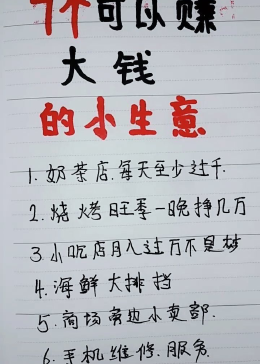 7个可以赚
大钱
的小生意
1.奶茶店.每天至少过千.
2.烧烤旺季一晚挣几万
3.小吃店月入过万不是梦
4.海鲜大排挡
5.商场旁边小卖部.
6.手机维修.服务.